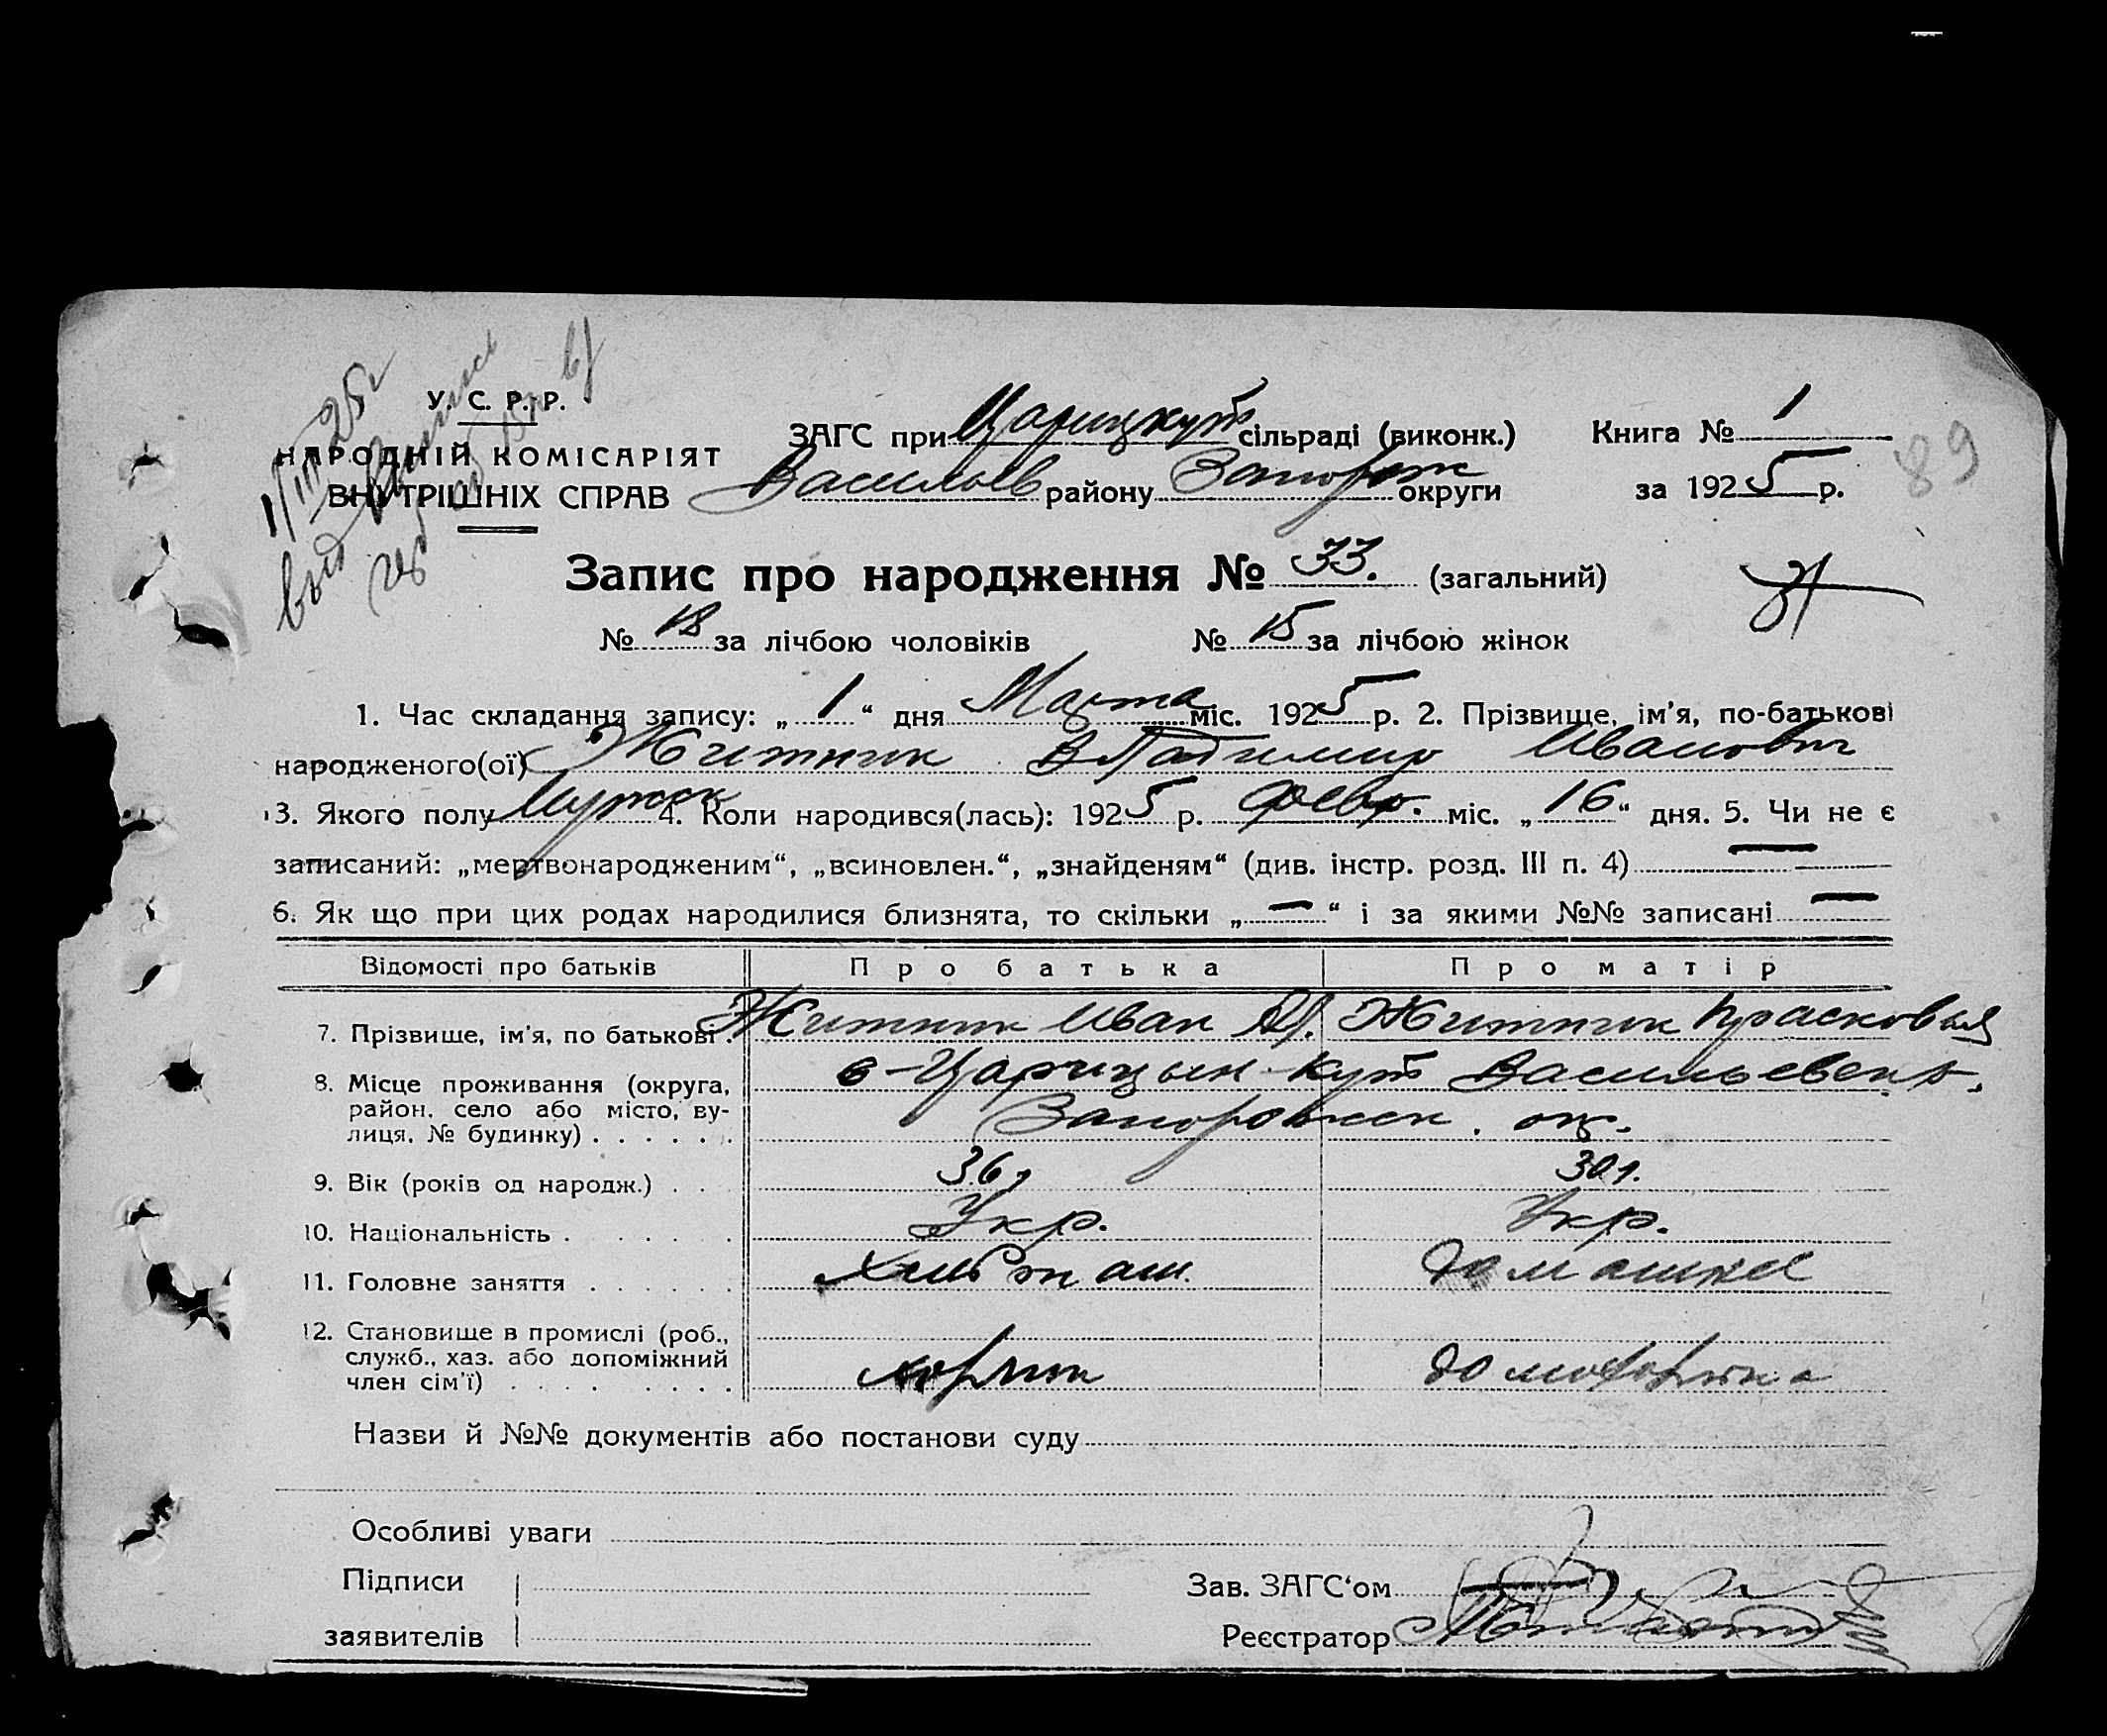 1/III 25 г
У. С. Р. Р.
НАРОДНІЙ КОМІСАРІЯТ
ВНУТРІШНІХ СПРАВ
ЗАГС при Царицкут сільраді (виконк.) Книга № 1
Васильев району Запорож округи за 1925 р.
89
Запис про народження № 33. (загальний)
№ 18 за лічбою чоловіків № 15 за лічбою жінок
1. Час складання запису: „ 1 “ дня Марта міс. 1925 р. 2. Прізвище, ім’я, по-батькові
народженого(ої) Житник Владимир Иванович
3. Якого полу Мужск 4. Коли народився(лась): 1925 р. Февр. міс. „ 16 “ дня. 5. Чи не є
записаний: „мертвонародженим“, „всиновлен.“, „знайденям“ (див. інстр. розд. III п. 4) —
6. Як що при цих родах народилися близнята, то скільки „ — “ і за якими №№ записані —
Відомості про батьків Про батька Про матір
7. Прізвище, ім’я, по батькові . Житник Иван Житник Прасковья
8. Місце проживання (округа, с-Царицын-Кут Васильевск
район, село або місто, ву-
лиця, № будинку) . . . . . . Запорожск. ок.
9. Вік (років од народж.) . . 36 30 л.
10. Національність . . . . . . Укр. Укр.
11. Головне заняття . . . . . . Хлебопаш. домашнея
12. Становище в промислі (роб.,
служб., хаз. або допоміжний
член сім’ї) . . . . . . . .
Назви й №№ документів або постанови суду
Особливі уваги
Підписи
заявителів
Зав. ЗАГС‘ом
Реєстратор